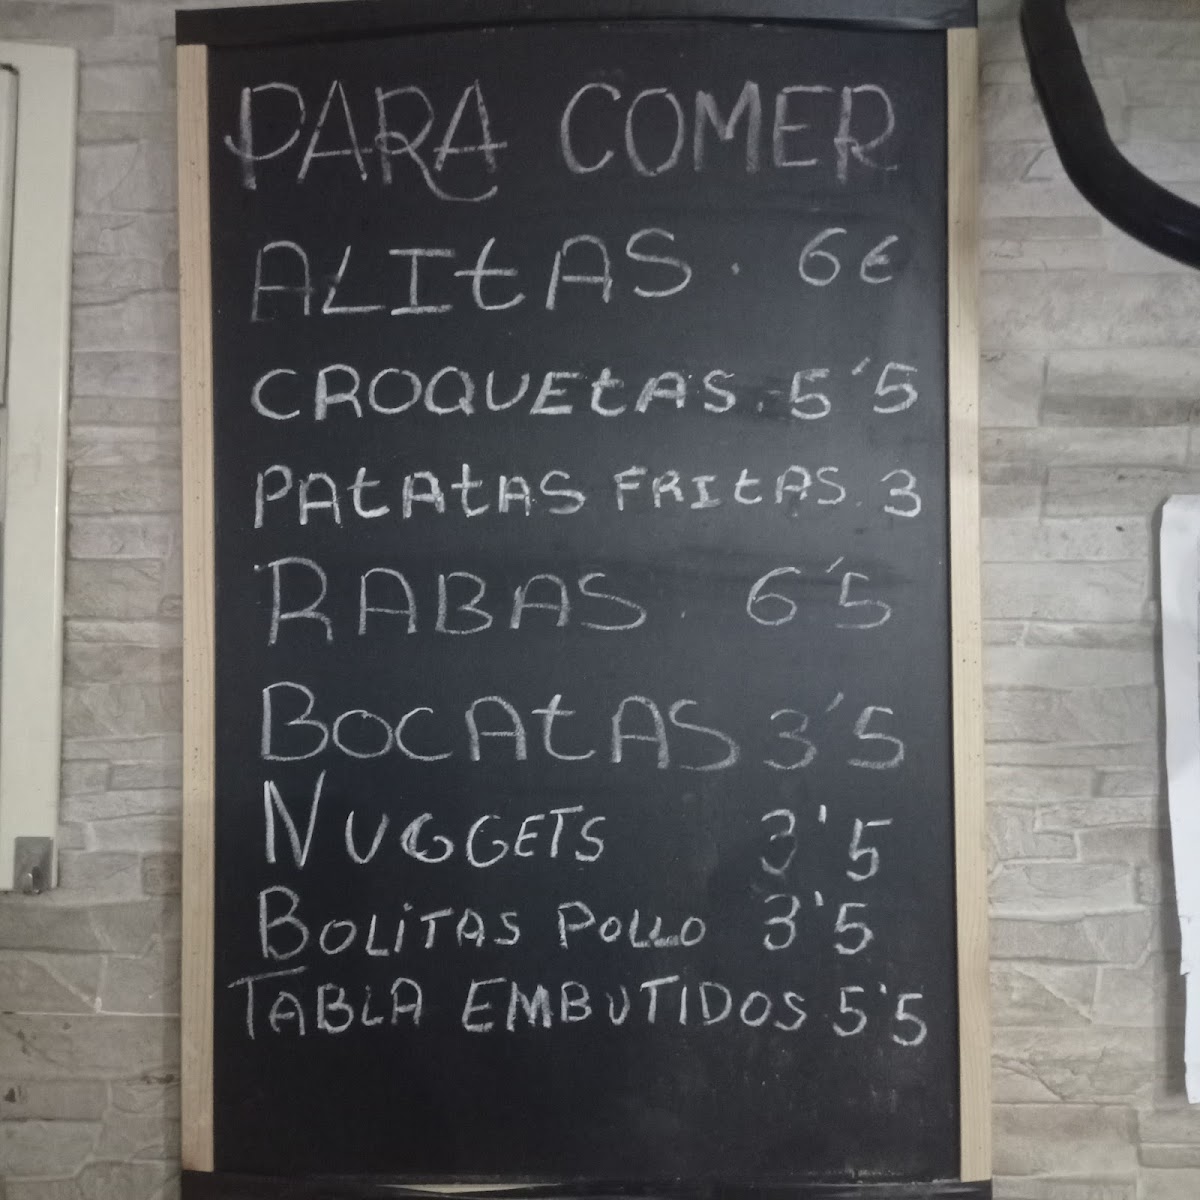 PARA COMER
ALItAS. 6€
CROQUEtAS. 5'5
PAtAtAS FRItAS. 3
RABAS. 6'5
BOCAtAS 3'5
NUGGETS 3'5
BOLiTAS POLLO 3'5
TABLA EMBUTIDOS 5'5